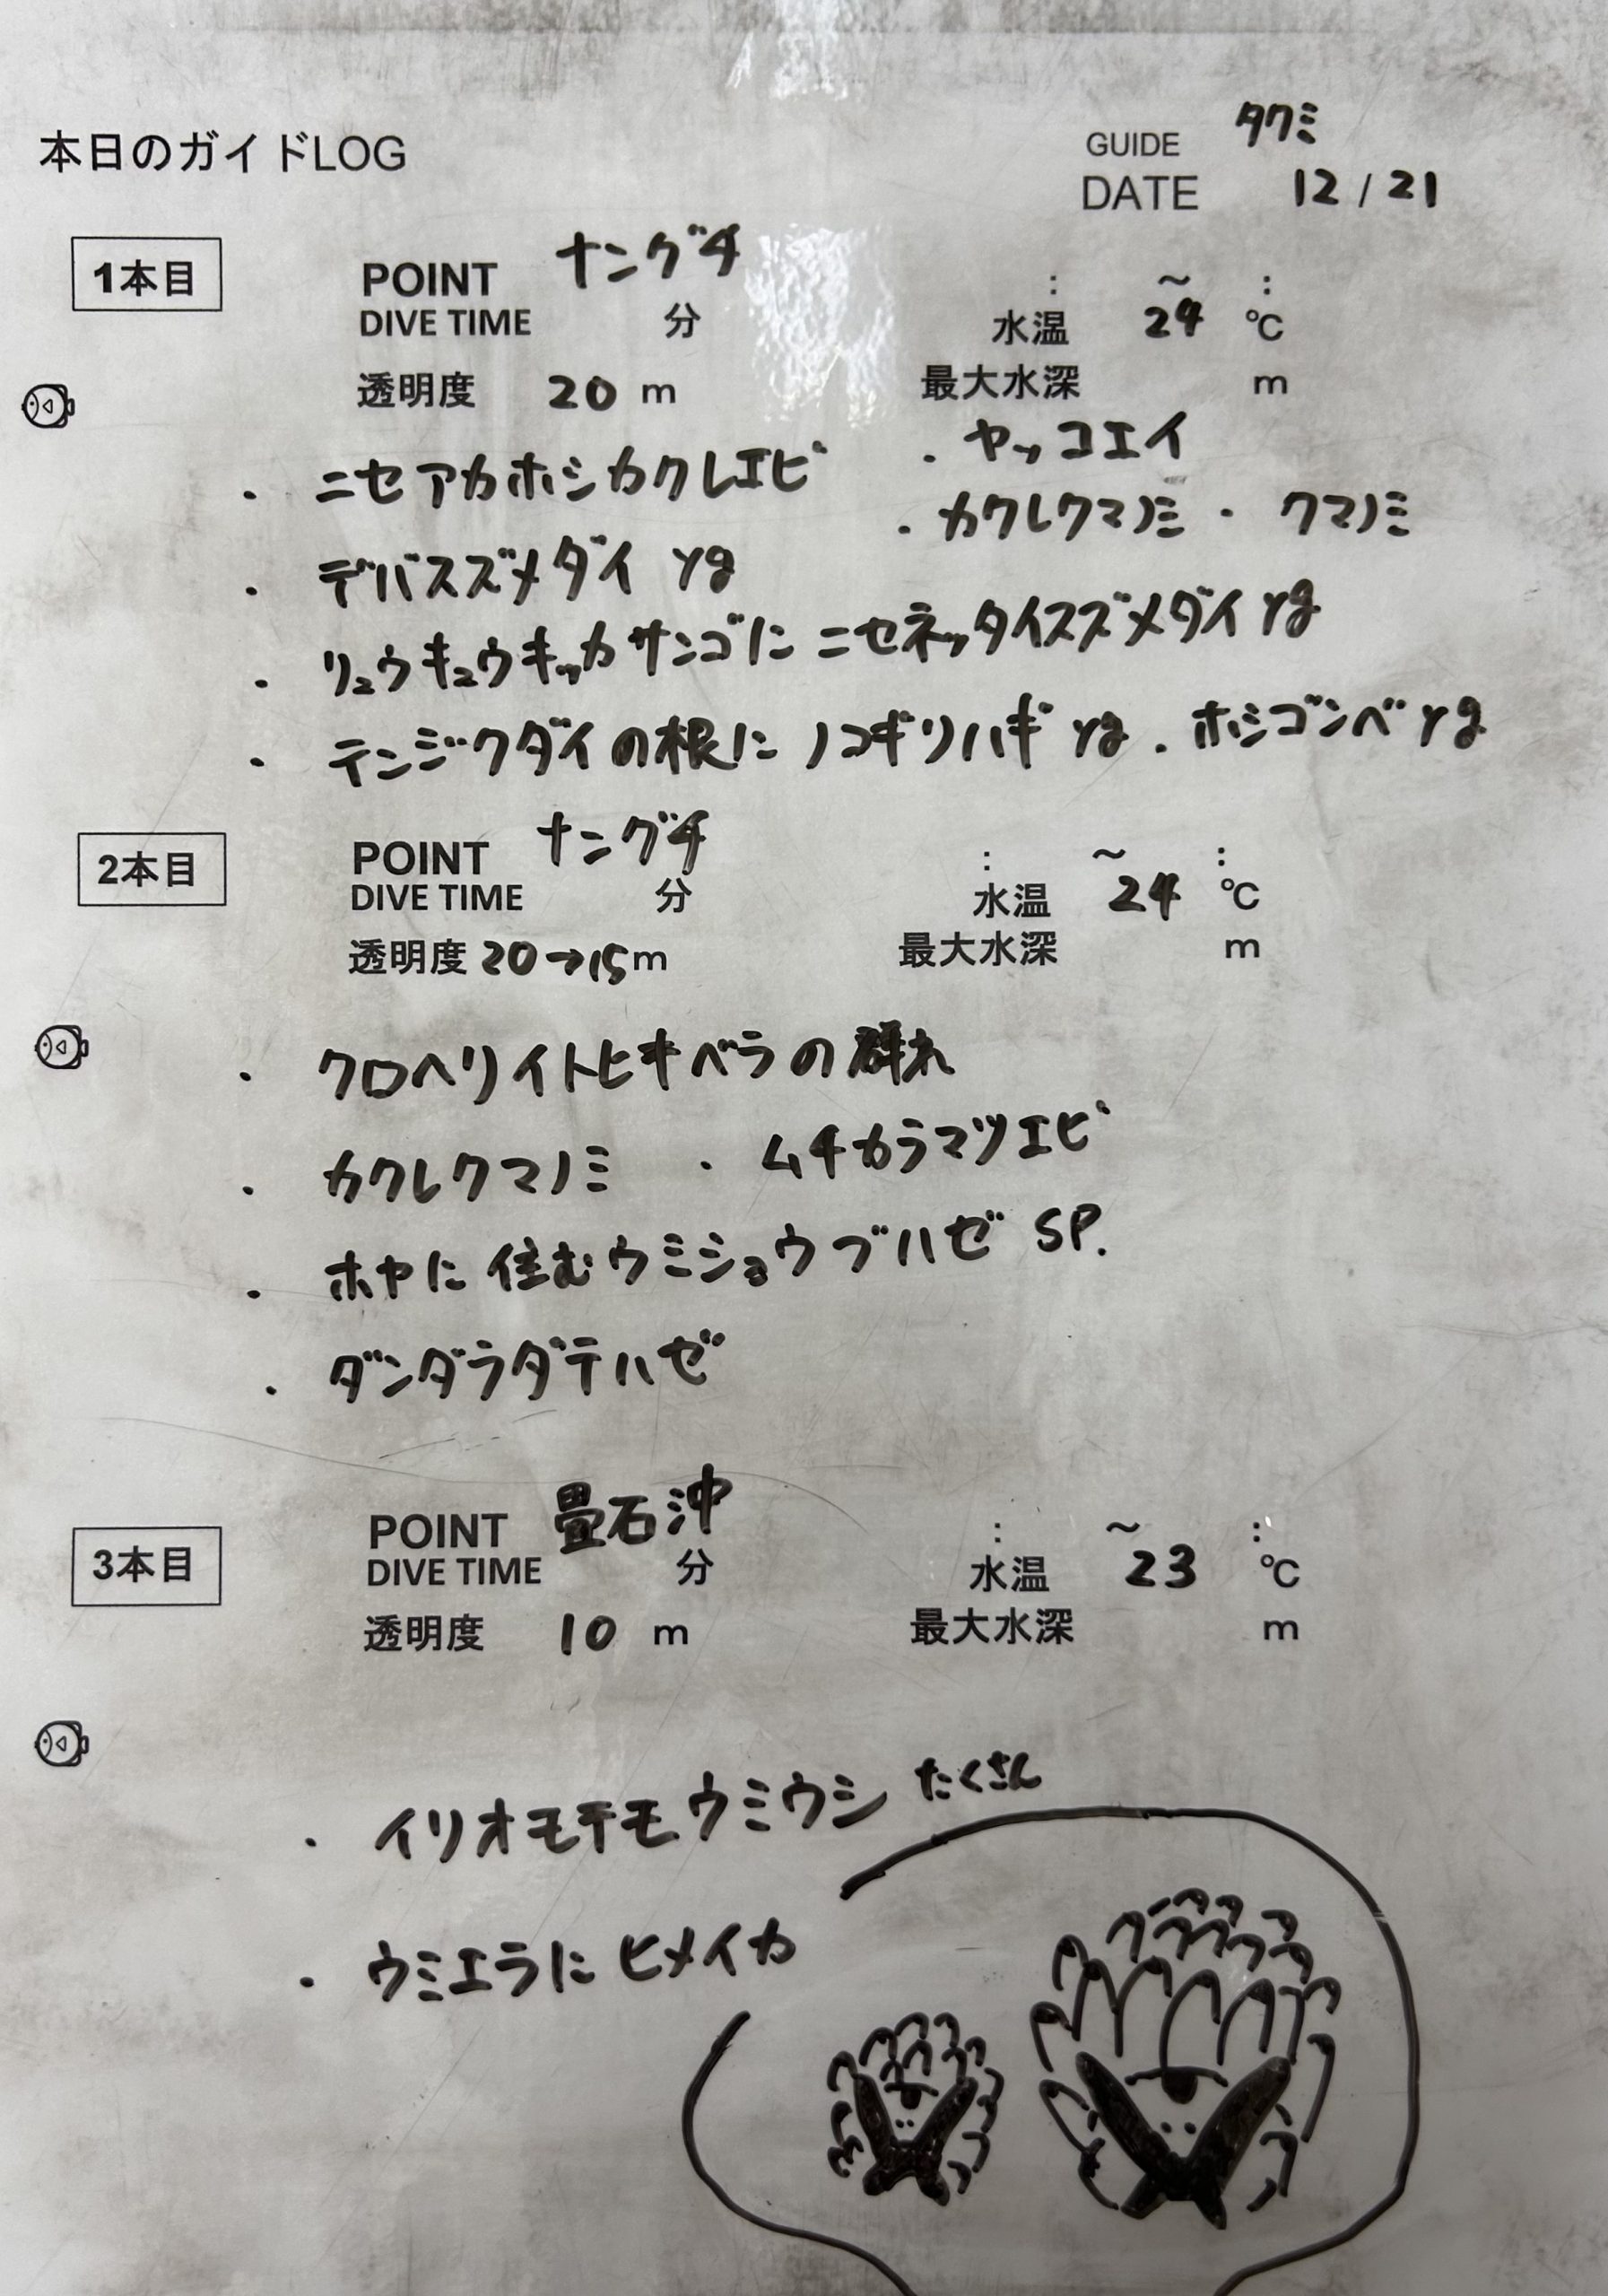 本日のガイドLOG
GUIDE タクミ
DATE 12 / 21
1本目
POINT ナングチ : ~ :
DIVE TIME 分 水温 24 ℃
透明度 20 m 最大水深 m
・ニセアカホシカクレエビ ・ヤッコエイ
・カクレクマノミ ・ クマノミ
・デバスズメダイ yg
・リュウキュウキッカサンゴに ニセネッタイスズメダイ yg
・テンジクダイの根に ノコギリハギ yg . ホシゴンベ yg
2本目
POINT ナングチ : ~ :
DIVE TIME 分 水温 24 ℃
透明度 20→15m 最大水深 m
・クロヘリイトヒキベラの群れ
・カクレクマノミ ・ムチカラマツエビ
・ホヤに住むウミショウブハゼ SP.
・ダンダラダテハゼ
3本目
POINT 畳石沖 : ~ :
DIVE TIME 分 水温 23 ℃
透明度 10 m 最大水深 m
・イリオモテモウミウシ たくさん
・ウミエラに ヒメイカ